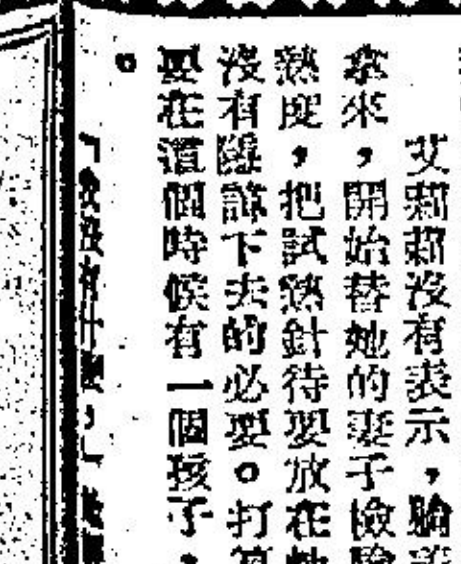 艾莉莉沒有表示，臉
拿來，開始替她的妻子檢驗
熱度，把試熱針待要放在她
沒有隱諱下去的必要。打算
要在這個時候有一個孩子，
。
「我沒有什麼，」她